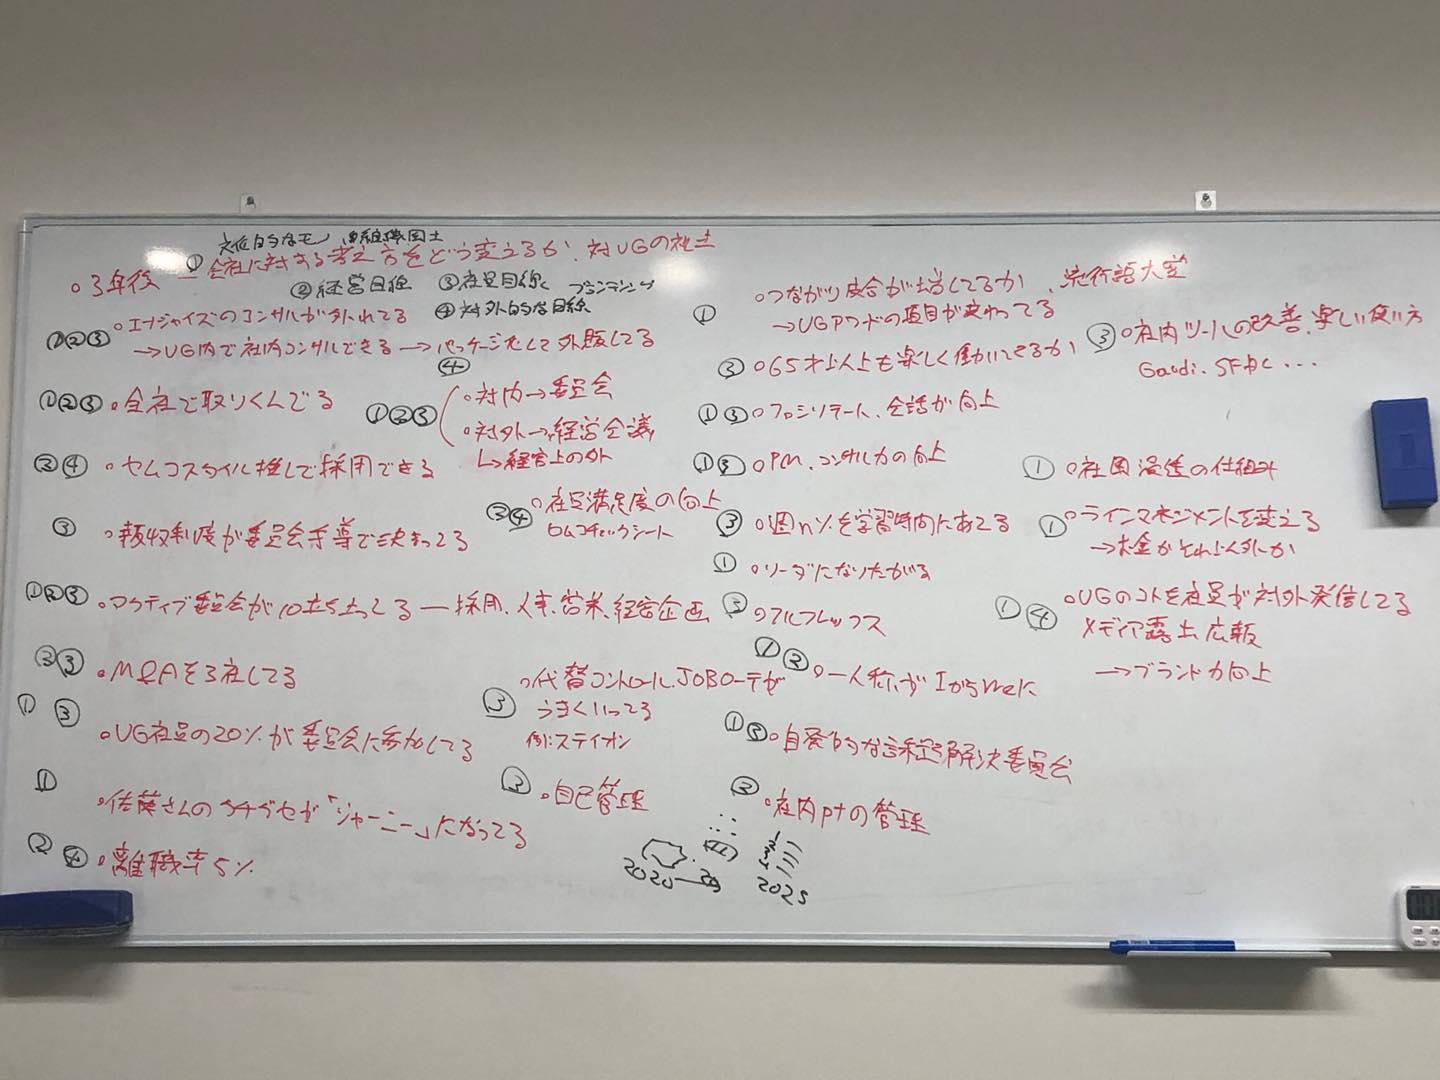 文化的なモノ 組織風土
。3年後 — ① 会社に対する考え方をどう変えるか、対UGの社
② 経営目線 ③ 社員目線 ブランディング
④ 対外的な目線
①②③ 。エナジャイズのコンサルが外れてる
→UG内で社内コンサルできる→パッケージ化して外販してる
①②③ 。全社で取りくんでる
④
①②③ 。対内→委員会
。対外→経営会議
↳経営上の外
③④ 。セムコスタイル推しで採用できる
③④ 。社員満足度の向上
セムコチェックシート
③ 。報収制度が委員会主導で決まってる
①②③ 。アクティブ委員会が10立ち上ってる — 採用、人事、営業、経営企画
②③ 。M&Aを3社してる
① ③ 。UG社員の20%が委員会に参加してる
① 。佐藤さんのが「ジャーニー」になってる
② ④ 。離職率5%
③ 。代替コントロール、JOBローテが
うまくいってる
例:ステイオン
③ 。自己管理
① 。つながり度合が増してるか、流行語大賞
→UGアワードの項目が変わってる
③ 。65才以上も楽しく働いてるか
①③ 。ファシリテート、会話力向上
①③ 。PM、コンサル力の向上
③ 。週n%を学習時間にあてる
① 。リーダになりたがる
③ 。フルフレックス
①③ 。一人称がIからWeに
①③ 。自発的な課題解決委員会
③ 。社内PTの管理
2020
2025
③ 。社内ツールの改善、楽しい使い方
Gaudi、SFDC…
① 。社風浸透の仕組み
① 。ラインマネジメントを変える
→お金かそれ以外か
①④ 。UGのコトを社員が対外発信してる
メディア露出 広報
→ブランド力向上